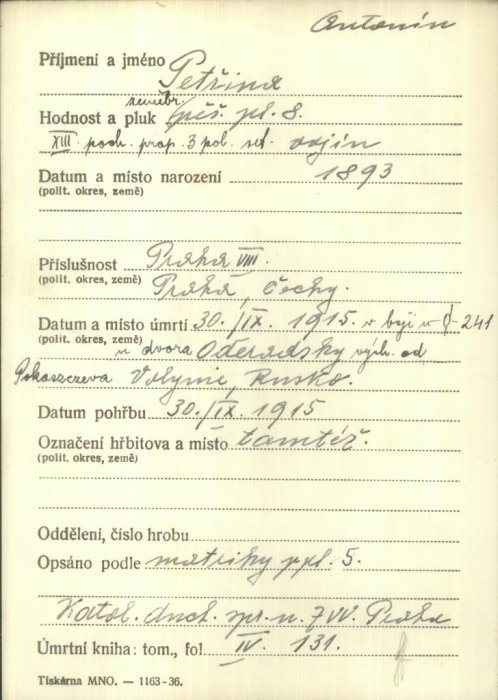 Antonín
Příjmení a jméno Petřina
zeměbr.
Hodnost a pluk pěš. pl. 8.
XIII. poch. prap. 3 pol. set. vojín
Datum a místo narození 1893
(polit. okres, země)
Příslušnost Praha VIII.
(polit. okres, země) Praha, Čechy.
Datum a místo úmrtí 30./IX. 1915. v boji u 241
(polit. okres, země) u dvora Oderadsky vých. od
Pokaszczeva Volynie, Rusko.
Datum pohřbu 30./IX. 1915
Označení hřbitova a místo tamtéž.
(polit. okres, země)
Oddělení, číslo hrobu
Opsáno podle matriky ppl. 5.
Katol. duch. spr. u ZVV. Praha
Úmrtní kniha: tom., fol. IV. 131.
Tiskárna MNO. — 1163-36.